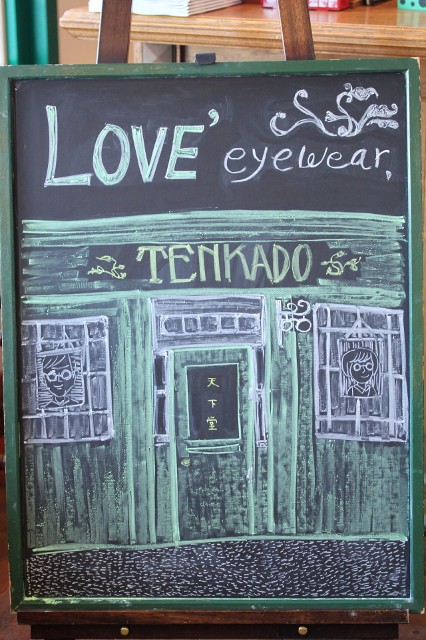 LOVE'
eyewear,
TENKADO
天
下
堂